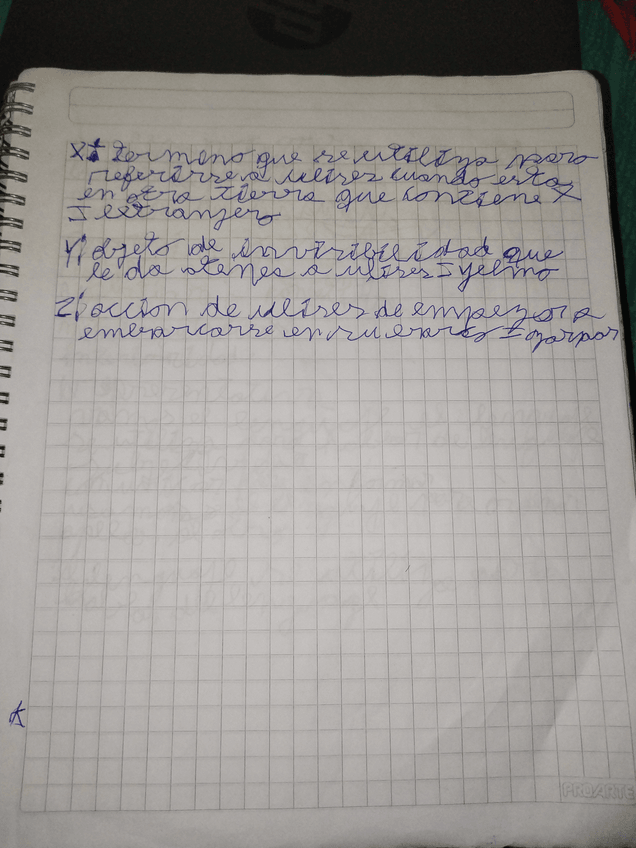 X: termono que se utiliza para
referirse a ulises cuando esta
en otra tierra que contiene X
I extranjero
Y: objeto de invisibilidad que
le da atenea a ulises I yelmo
Z: accion de ulises de empezar a
embarcarse en su I zarpar
PROARTE